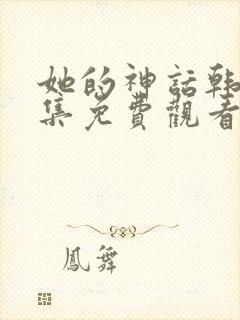 她的神話韩
集免費觀看
鳳舞